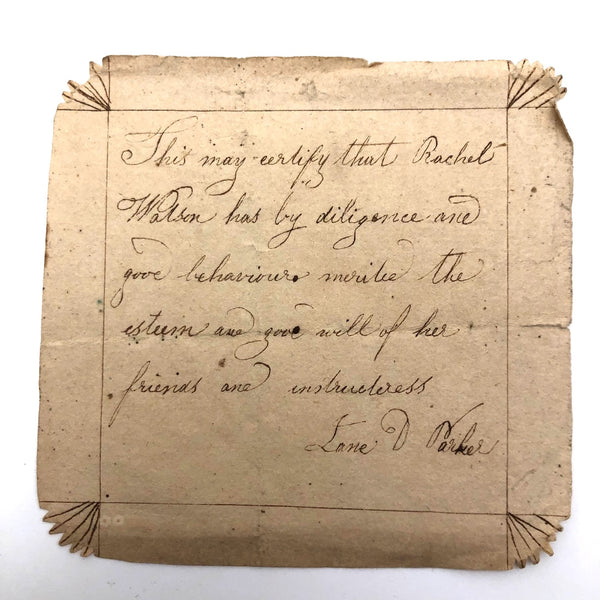 This may certify that Rachel
Watson has by diligence and
good behaviour merited the
esteem and good will of her
friends and instructress
Jane D Parker